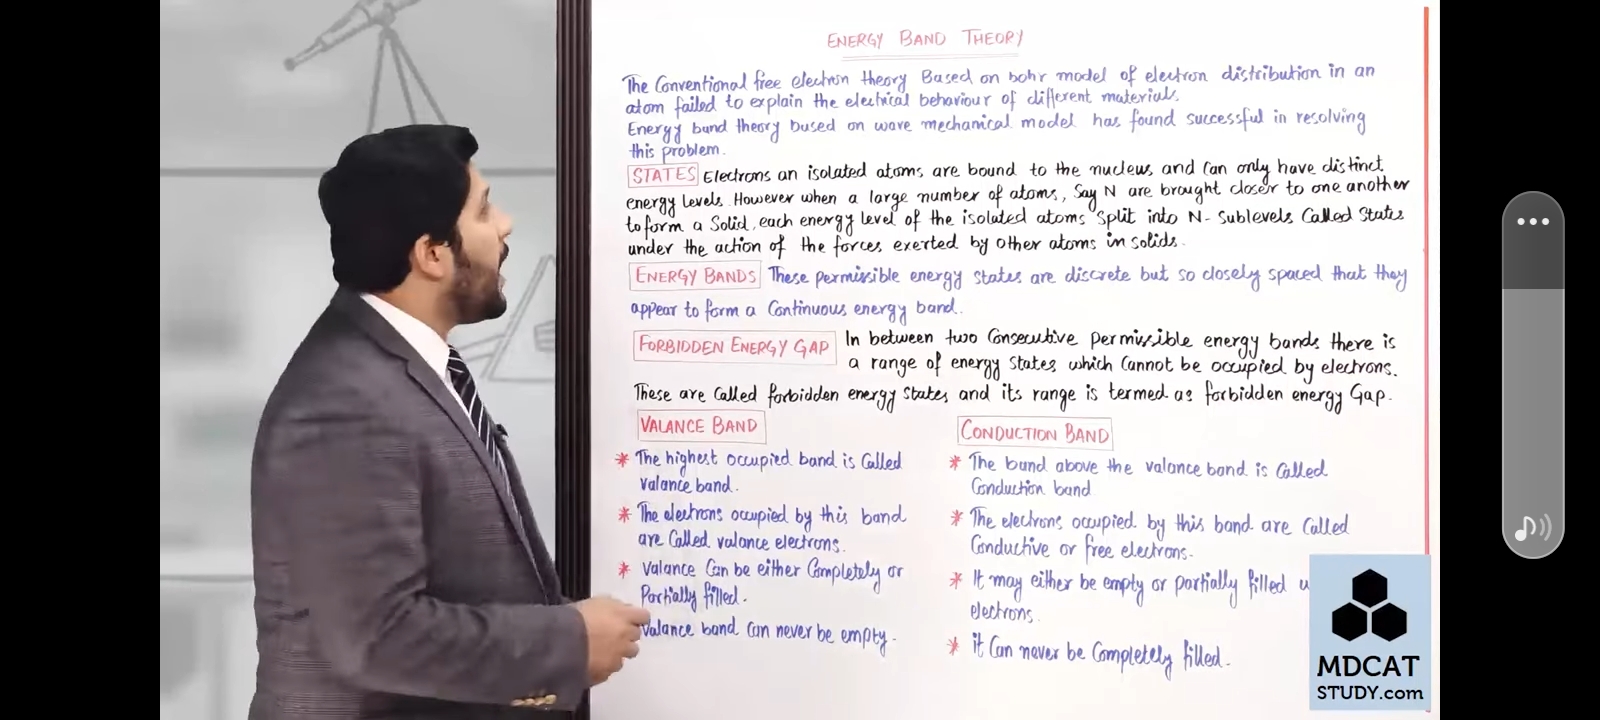 ENERGY BAND THEORY
The Conventional free electron theory Based on bohr model of electron distribution in an
atom failed to explain the electrical behaviour of different materials.
Energy band theory bused on wave mechanical model has found successful in resolving
this problem.
STATES Electrons an isolated atoms are bound to the nucleus and Can only have distinct
energy levels. However when a large number of atoms, Say N are brought closer to one another
to form a Solid, each energy level of the isolated atoms Split into N-Sublevels Called States
under the action of the forces exerted by other atoms in solids.
ENERGY BANDS These permissible energy states are discrete but so closely spaced that they
appear to form a Continuous energy band.
FORBIDDEN ENERGY GAP In between two Consecutive permissible energy bands there is
a range of energy states which Cannot be occupied by electrons.
These are Called forbidden energy States and its range is termed as forbidden energy Gap.
VALANCE BAND
* The highest occupied band is Called
valance band.
* The electrons occupied by this band
are Called valance electrons.
* Valance Can be either Completely or
Partially filled.
Valance band Can never be empty.
CONDUCTION BAND
* The band above the valance band is Called
Conduction band
* The electrons occupied by this band are Called
Conductive or free electrons.
* It may either be empty or partially filled
electrons.
* it Can never be Completely filled.
MDCAT
STUDY.com